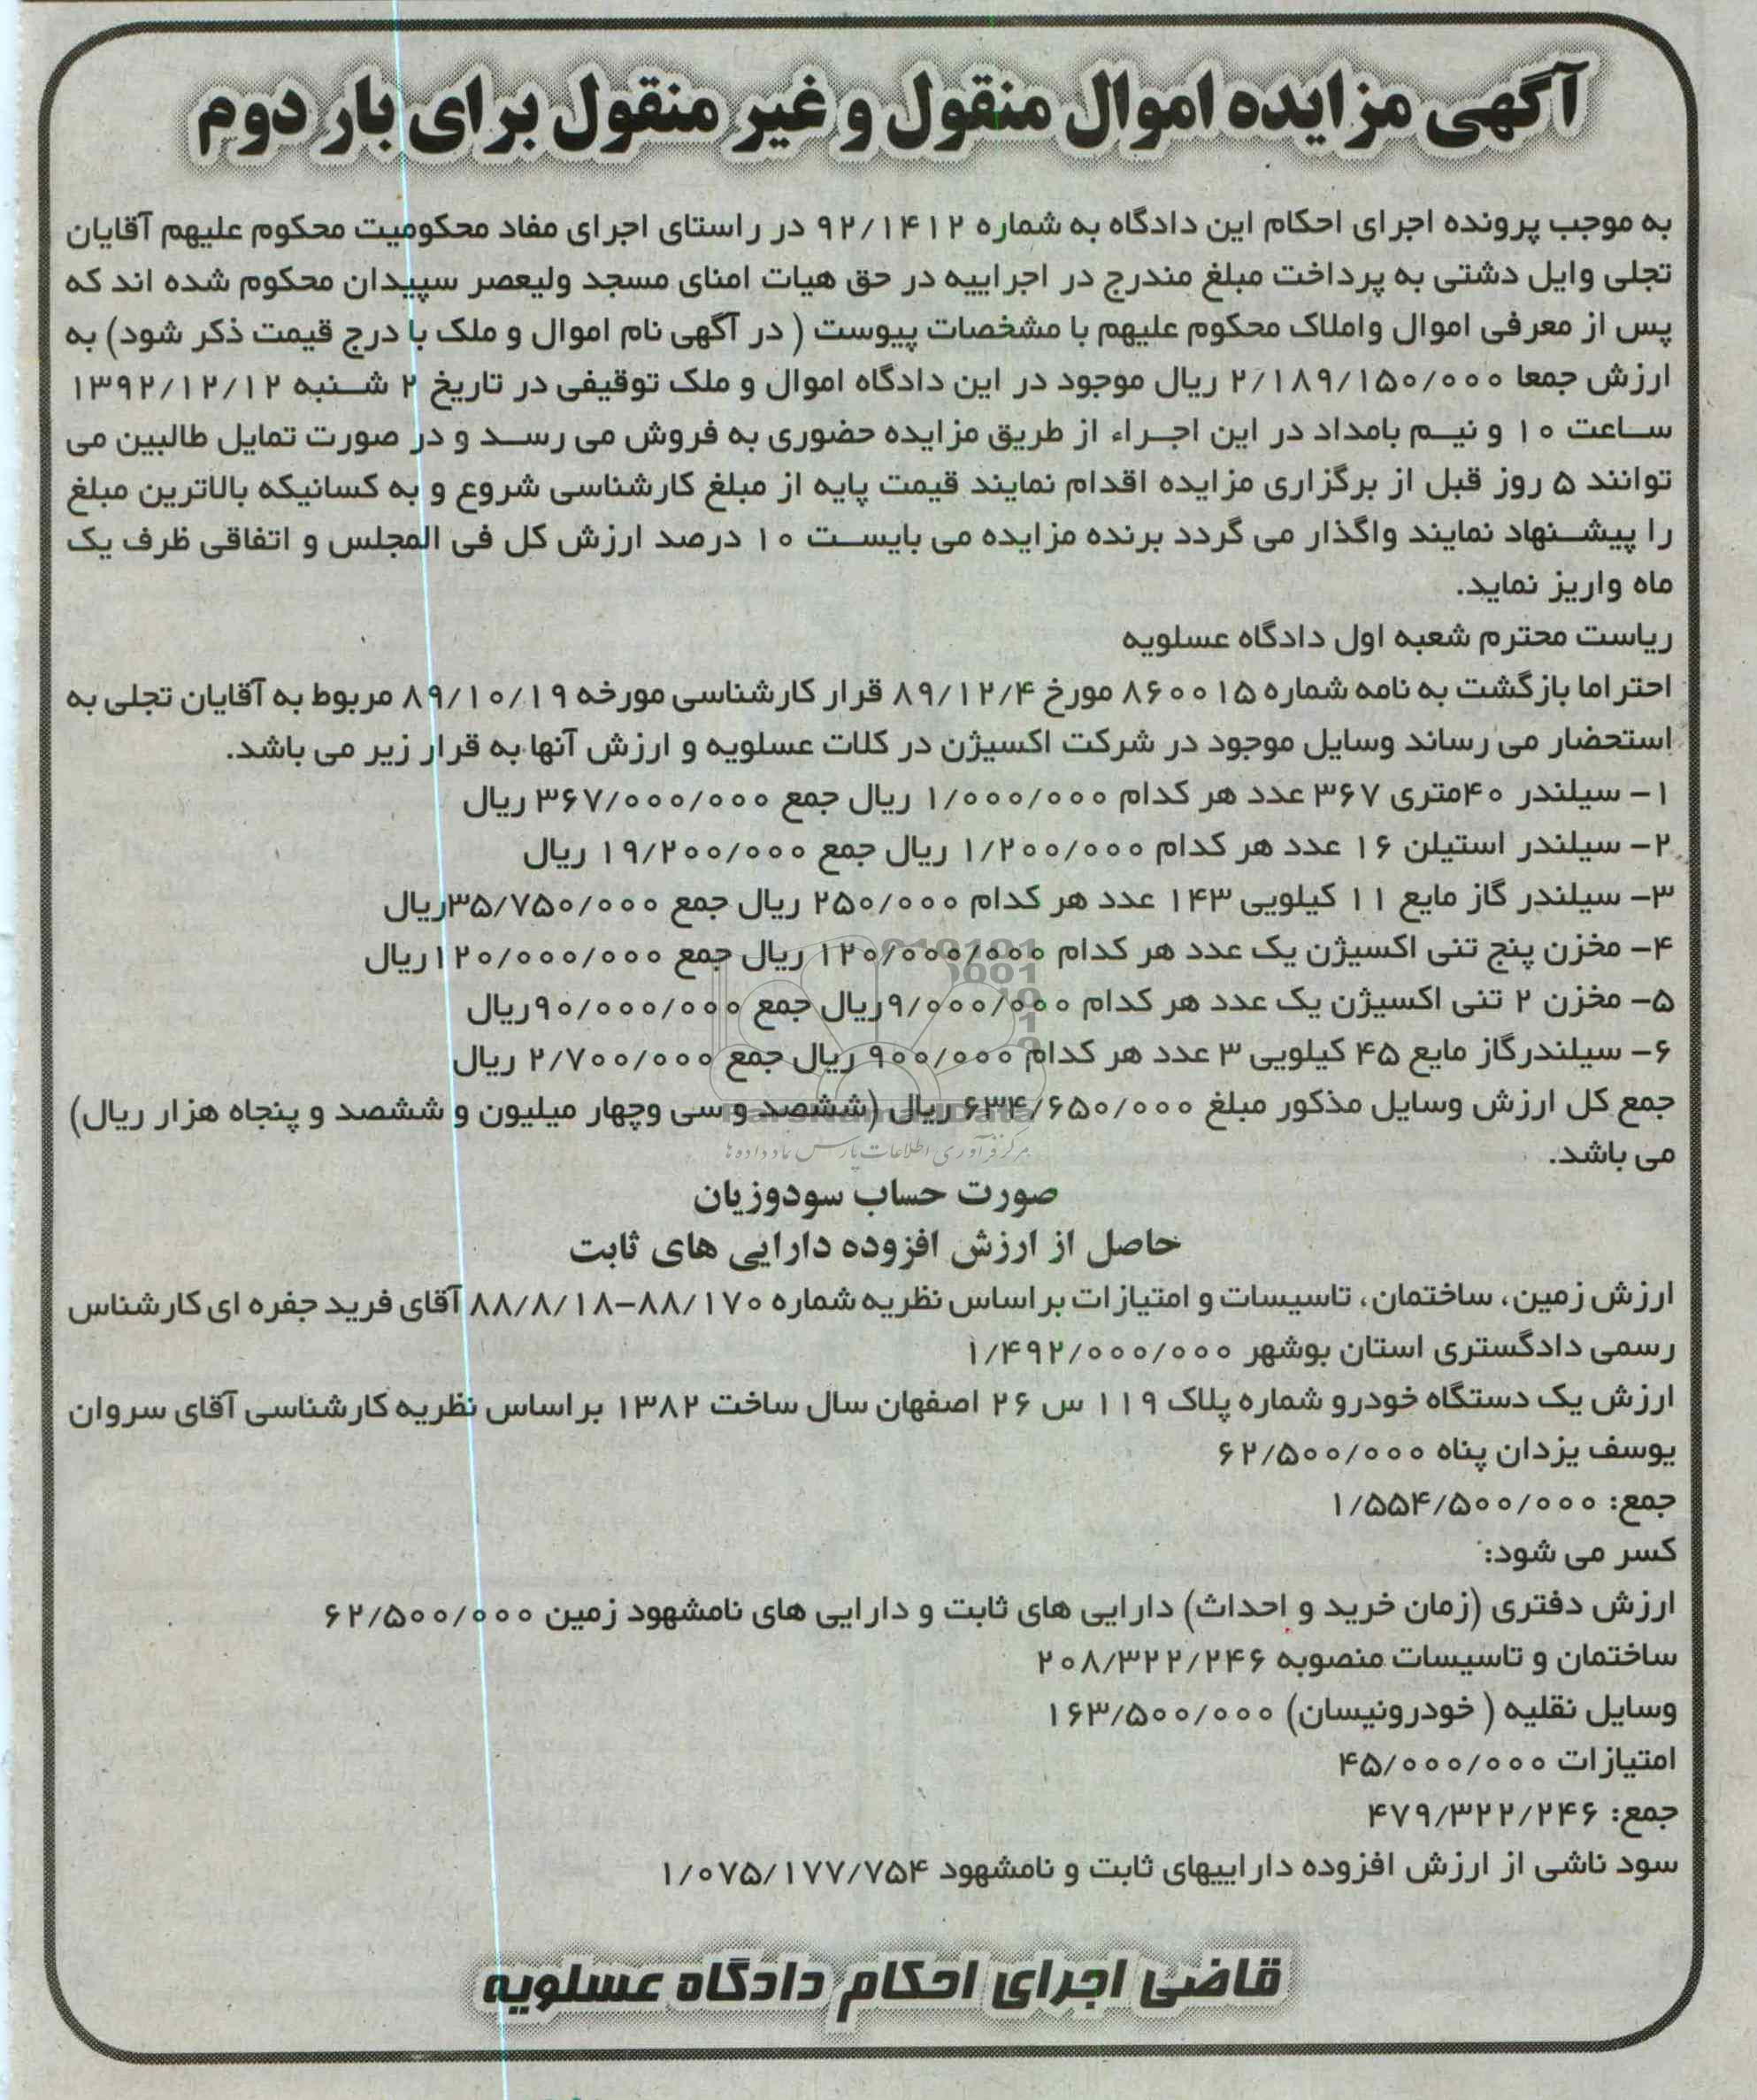 آگهی مزایده اموال منقول و غیر منقول برای بار دوم
به موجب پرونده اجرای احکام این دادگاه به شماره ۹۲/۱۴۱۲ در راستای اجرای مفاد محکومیت محکوم علیهم آقایان
تجلی وایل دشتی به پرداخت مبلغ مندرج در اجراییه در حق هیات امنای مسجد ولیعصر سپیدان محکوم شده اند که
پس از معرفی اموال واملاک محکوم علیهم با مشخصات پیوست ( در آگهی نام اموال و ملک با درج قیمت ذکر شود) به
ارزش جمعا ۲/۱۸۹/۱۵۰/۰۰۰ ریال موجود در این دادگاه اموال و ملک توقیفی در تاریخ ۲ شنبه ۱۳۹۲/۱۲/۱۲
ساعت ۱۰ و نیم بامداد در این اجراء از طریق مزایده حضوری به فروش می رسد و در صورت تمایل طالبین می
توانند ۵ روز قبل از برگزاری مزایده اقدام نمایند قیمت پایه از مبلغ کارشناسی شروع و به کسانیکه بالاترین مبلغ
را پیشنهاد نمایند واگذار می گردد برنده مزایده می بایست ۱۰ درصد ارزش کل فی المجلس و اتفاقی ظرف یک
ماه واریز نماید.
ریاست محترم شعبه اول دادگاه عسلویه
احتراما بازگشت به نامه شماره ۸۶۰۰۱۵ مورخ ۸۹/۱۲/۴ قرار کارشناسی مورخه ۸۹/۱۰/۱۹ مربوط به آقایان تجلی به
استحضار می رساند وسایل موجود در شرکت اکسیژن در کلات عسلویه و ارزش آنها به قرار زیر می باشد.
۱- سیلندر ۴۰متری ۳۶۷ عدد هر کدام ۱/۰۰۰/۰۰۰ ریال جمع ۳۶۷/۰۰۰/۰۰۰ ریال
۲- سیلندر استیلن ۱۶ عدد هر کدام ۱/۲۰۰/۰۰۰ ریال جمع ۱۹/۲۰۰/۰۰۰ ریال
۳- سیلندر گاز مایع ۱۱ کیلویی ۱۴۳ عدد هر کدام ۲۵۰/۰۰۰ ریال جمع ۳۵/۷۵۰/۰۰۰ریال
۴- مخزن پنج تنی اکسیژن یک عدد هر کدام ۱۲۰/۰۰۰/۰۰۰ ریال جمع ۱۲۰/۰۰۰/۰۰۰ریال
۵- مخزن ۲ تنی اکسیژن یک عدد هر کدام ۹/۰۰۰/۰۰۰ریال جمع ۹۰/۰۰۰/۰۰۰ریال
۶- سیلندرگاز مایع ۴۵ کیلویی ۳ عدد هر کدام ۹۰۰/۰۰۰ ریال جمع ۲/۷۰۰/۰۰۰ ریال
جمع کل ارزش وسایل مذکور مبلغ ۶۳۴/۶۵۰/۰۰۰ ریال (ششصد و سی وچهار میلیون و ششصد و پنجاه هزار ریال)
می باشد.
مرکز فرآوری اطلاعات پارس نماد داده ها
صورت حساب سودوزیان
حاصل از ارزش افزوده دارایی های ثابت
ارزش زمین، ساختمان، تاسیسات و امتیازات بر اساس نظریه شماره ۸۸/۱۷۰-۸۸/۸/۱۸ آقای فرید جفره ای کارشناس
رسمی دادگستری استان بوشهر ۱/۴۹۲/۰۰۰/۰۰۰
ارزش یک دستگاه خودرو شماره پلاک ۱۱۹ س ۲۶ اصفهان سال ساخت ۱۳۸۲ بر اساس نظریه کارشناسی آقای سروان
یوسف یزدان پناه ۶۲/۵۰۰/۰۰۰
جمع: ۱/۵۵۴/۵۰۰/۰۰۰
کسر می شود:
ارزش دفتری (زمان خرید و احداث) دارایی های ثابت و دارایی های نامشهود زمین ۶۲/۵۰۰/۰۰۰
ساختمان و تاسیسات منصوبه ۲۰۸/۳۲۲/۲۴۶
وسایل نقلیه ( خودرونیسان) ۱۶۳/۵۰۰/۰۰۰
امتیازات ۴۵/۰۰۰/۰۰۰
جمع: ۴۷۹/۳۲۲/۲۴۶
سود ناشی از ارزش افزوده داراییهای ثابت و نامشهود ۱/۰۷۵/۱۷۷/۷۵۴
قاضی اجرای احکام دادگاه عسلویه